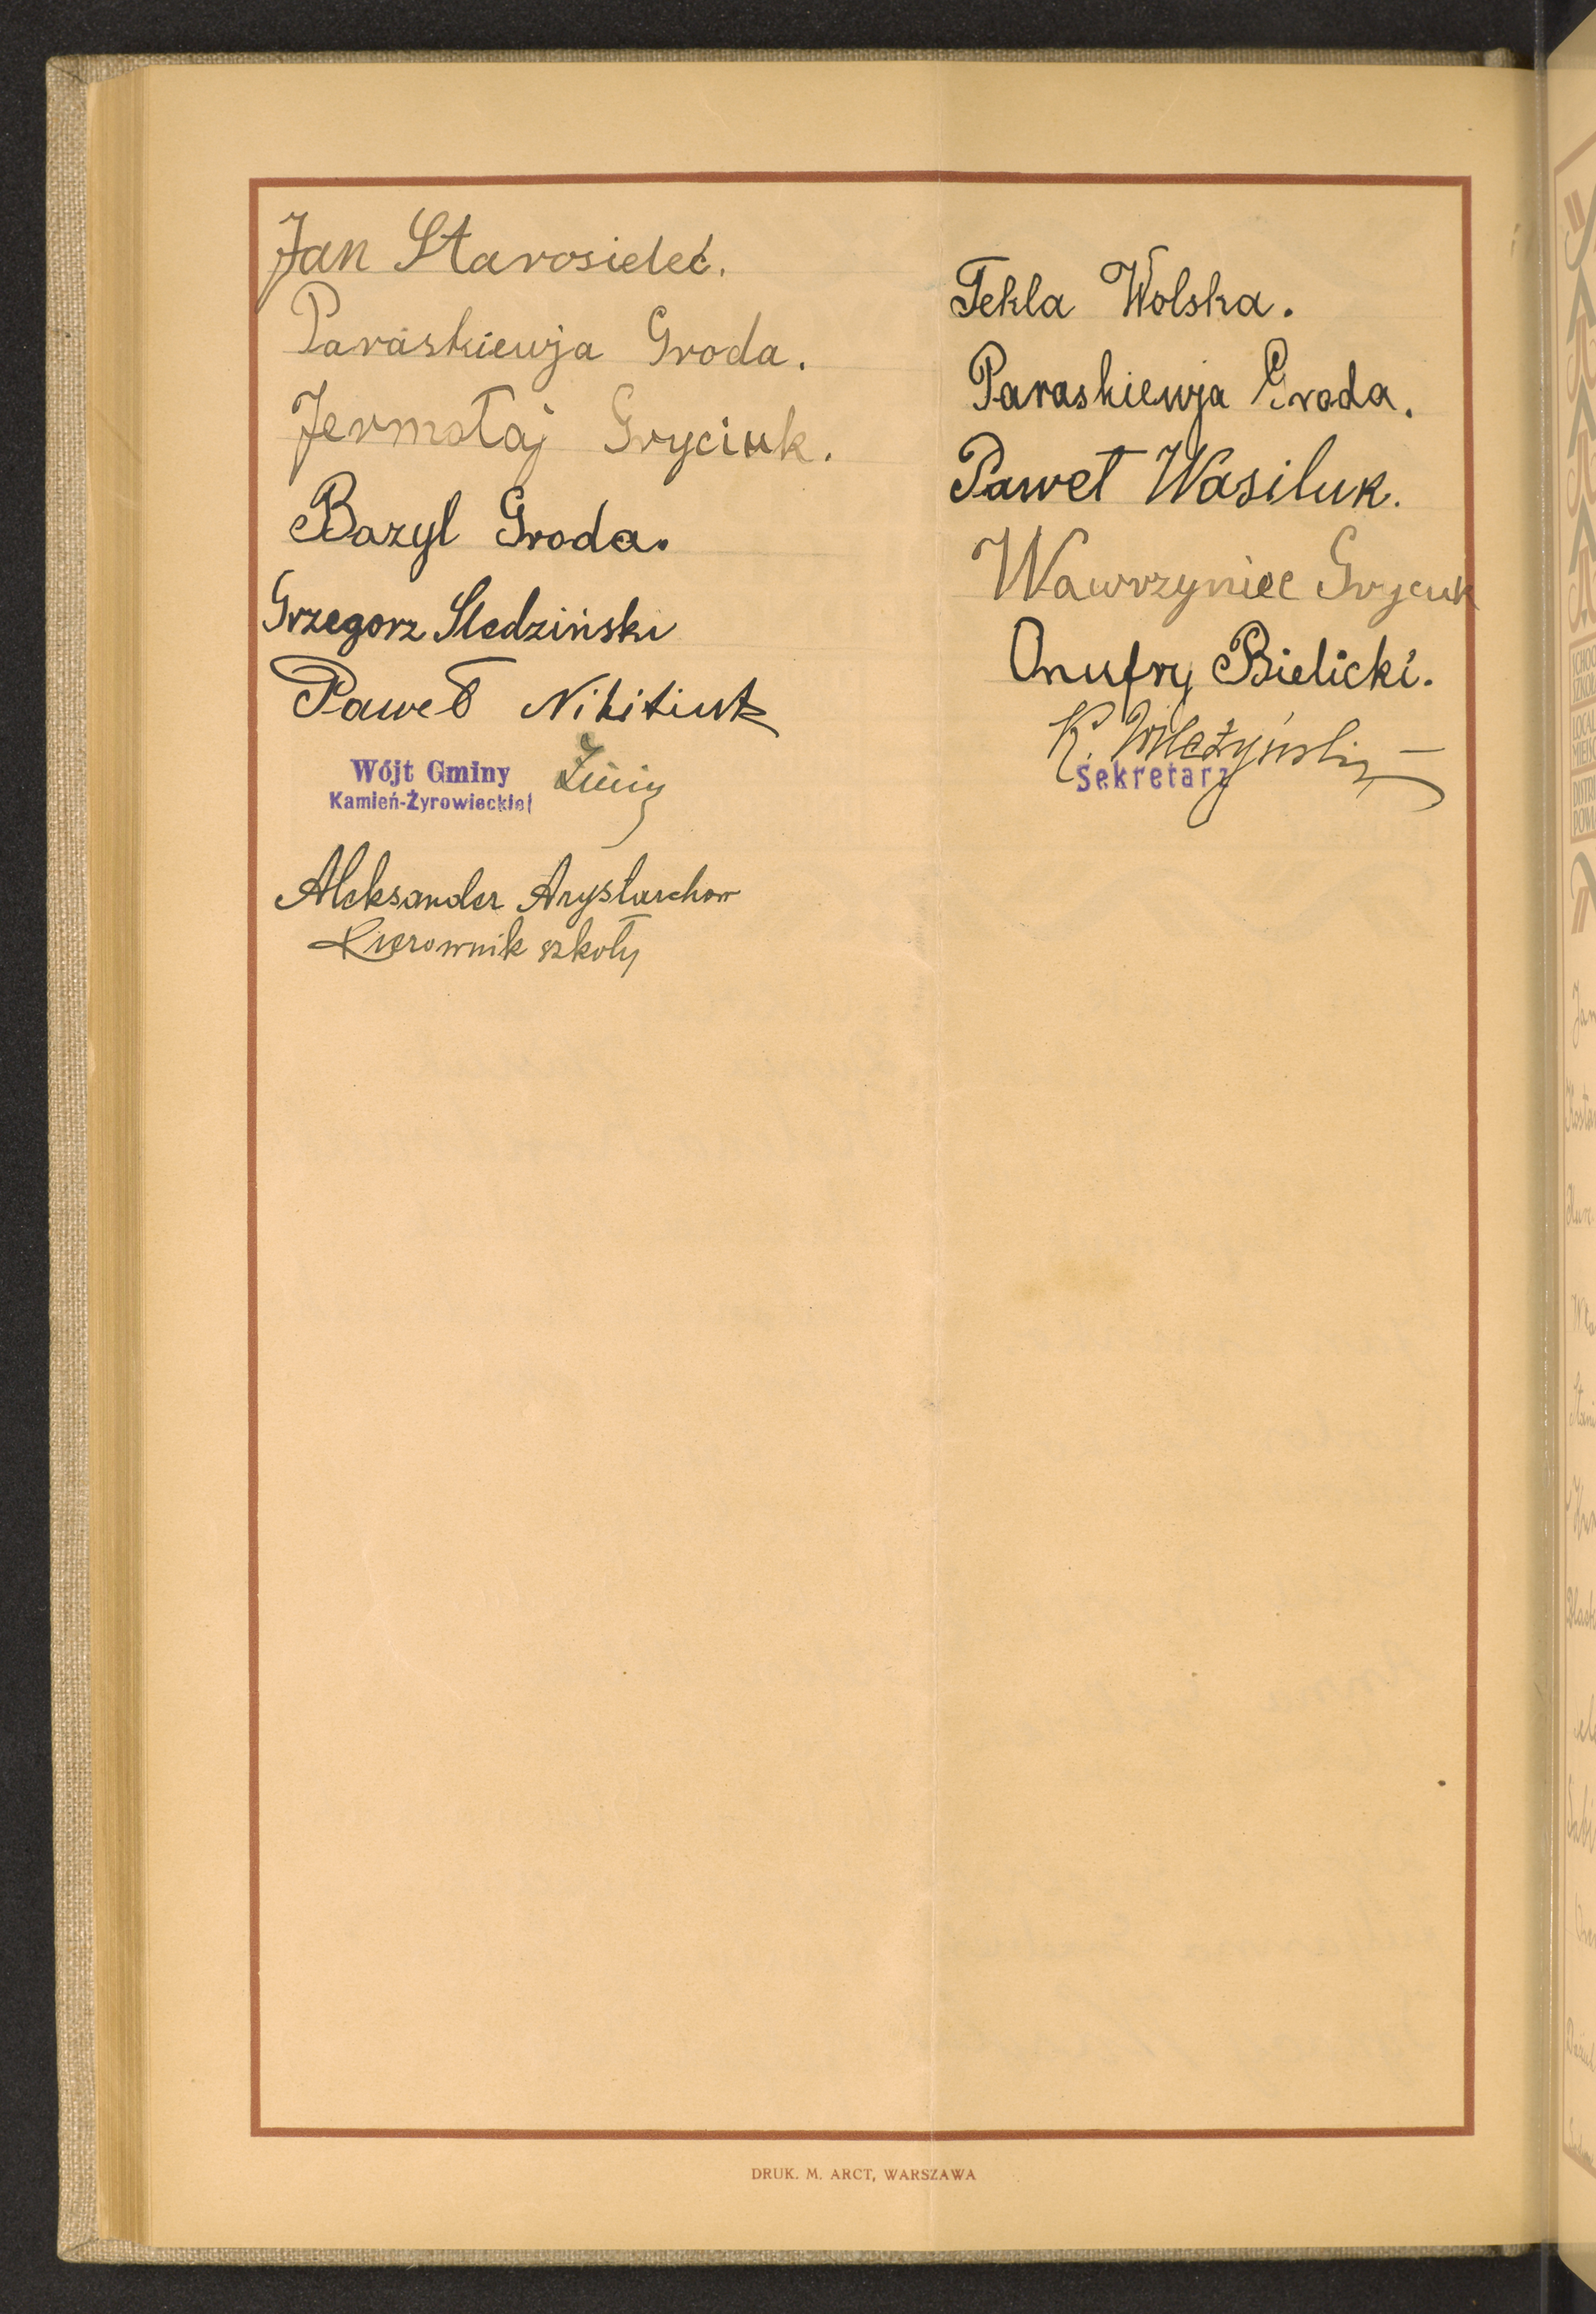 Jan Starosieleć.
Paraskiewja Groda.
Jermołaj Gryciuk.
Bazyl Groda.
Grzegorz Sledziński
Paweł Nikitiuk
Wójt Gminy
Kamień-Żyrowieckiej
Aleksander Arystarchow
Kierownik szkoły
Tekla Wolska.
Paraskiewja Groda.
Paweł Wasiluk.
Wawrzyniec Grycuk
Onufry Bielicki.
K.
Sekretarz
DRUK. M. ARCT, WARSZAWA